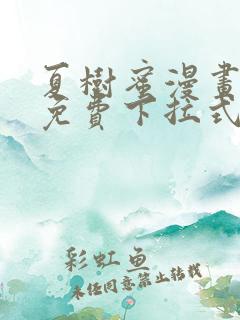 夏樹蜜漫畫
免費下拉式
彩虹鱼
未任同意禁止转载